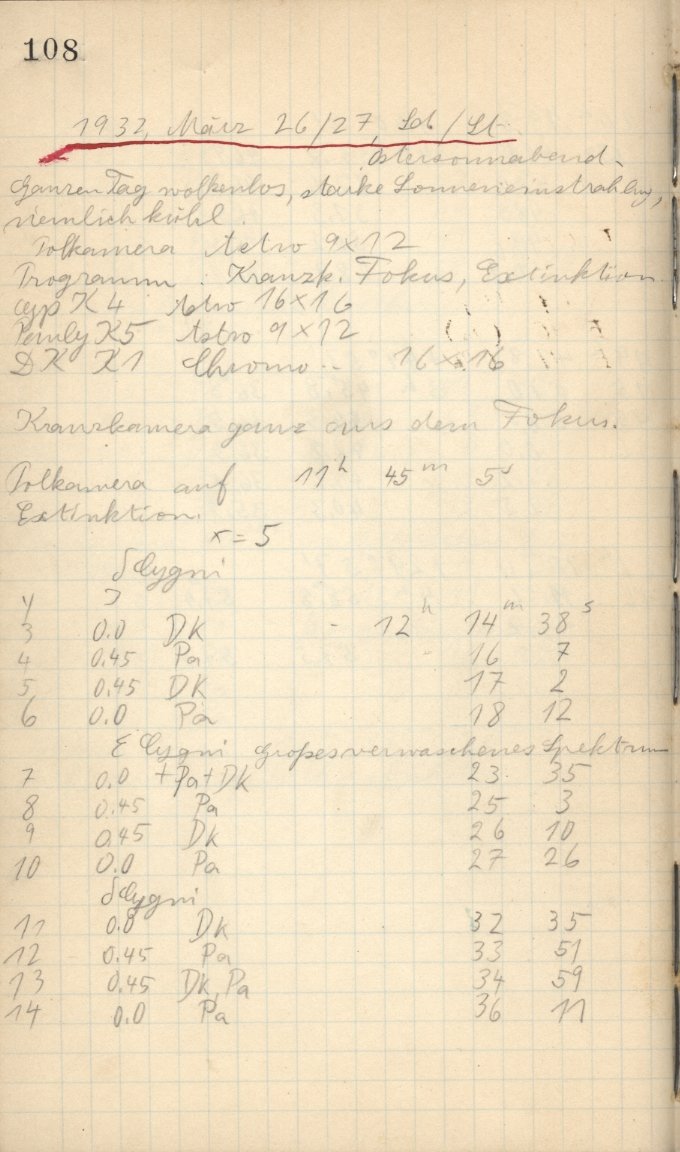 108
1932, März 26/27, Sb/St.
Ostersonnabend.
Ganzen Tag wolkenlos, starke Sonneneinstrahlung,
ziemlich kühl.
Polkamera Astro 9x12
Programm. Kranzk. Fokus, Extinktion.
K4 Astro 16x16
K5 Astro 9x12
DK K1 Chromo 16x16
Kranzkamera ganz aus dem Fokus.
Polkamera auf 11h 45m 5s
Extinktion.
x = 5
δ Cygni
y
3 0.0 DK - 12h 14m 38s
4 0.45 Pa - 16 7
5 0.45 DK 17 2
6 0.0 Pa 18 12
ε Cygni großes verwaschenes Spektrum
7 0.0 +Pa+DK 23 35
8 0.45 Pa 25 3
9 0.45 DK 26 10
10 0.0 Pa 27 26
δ Cygni
11 0.0 DK 32 35
12 0.45 Pa 33 51
13 0.45 DK, Pa 34 59
14 0.0 Pa 36 11